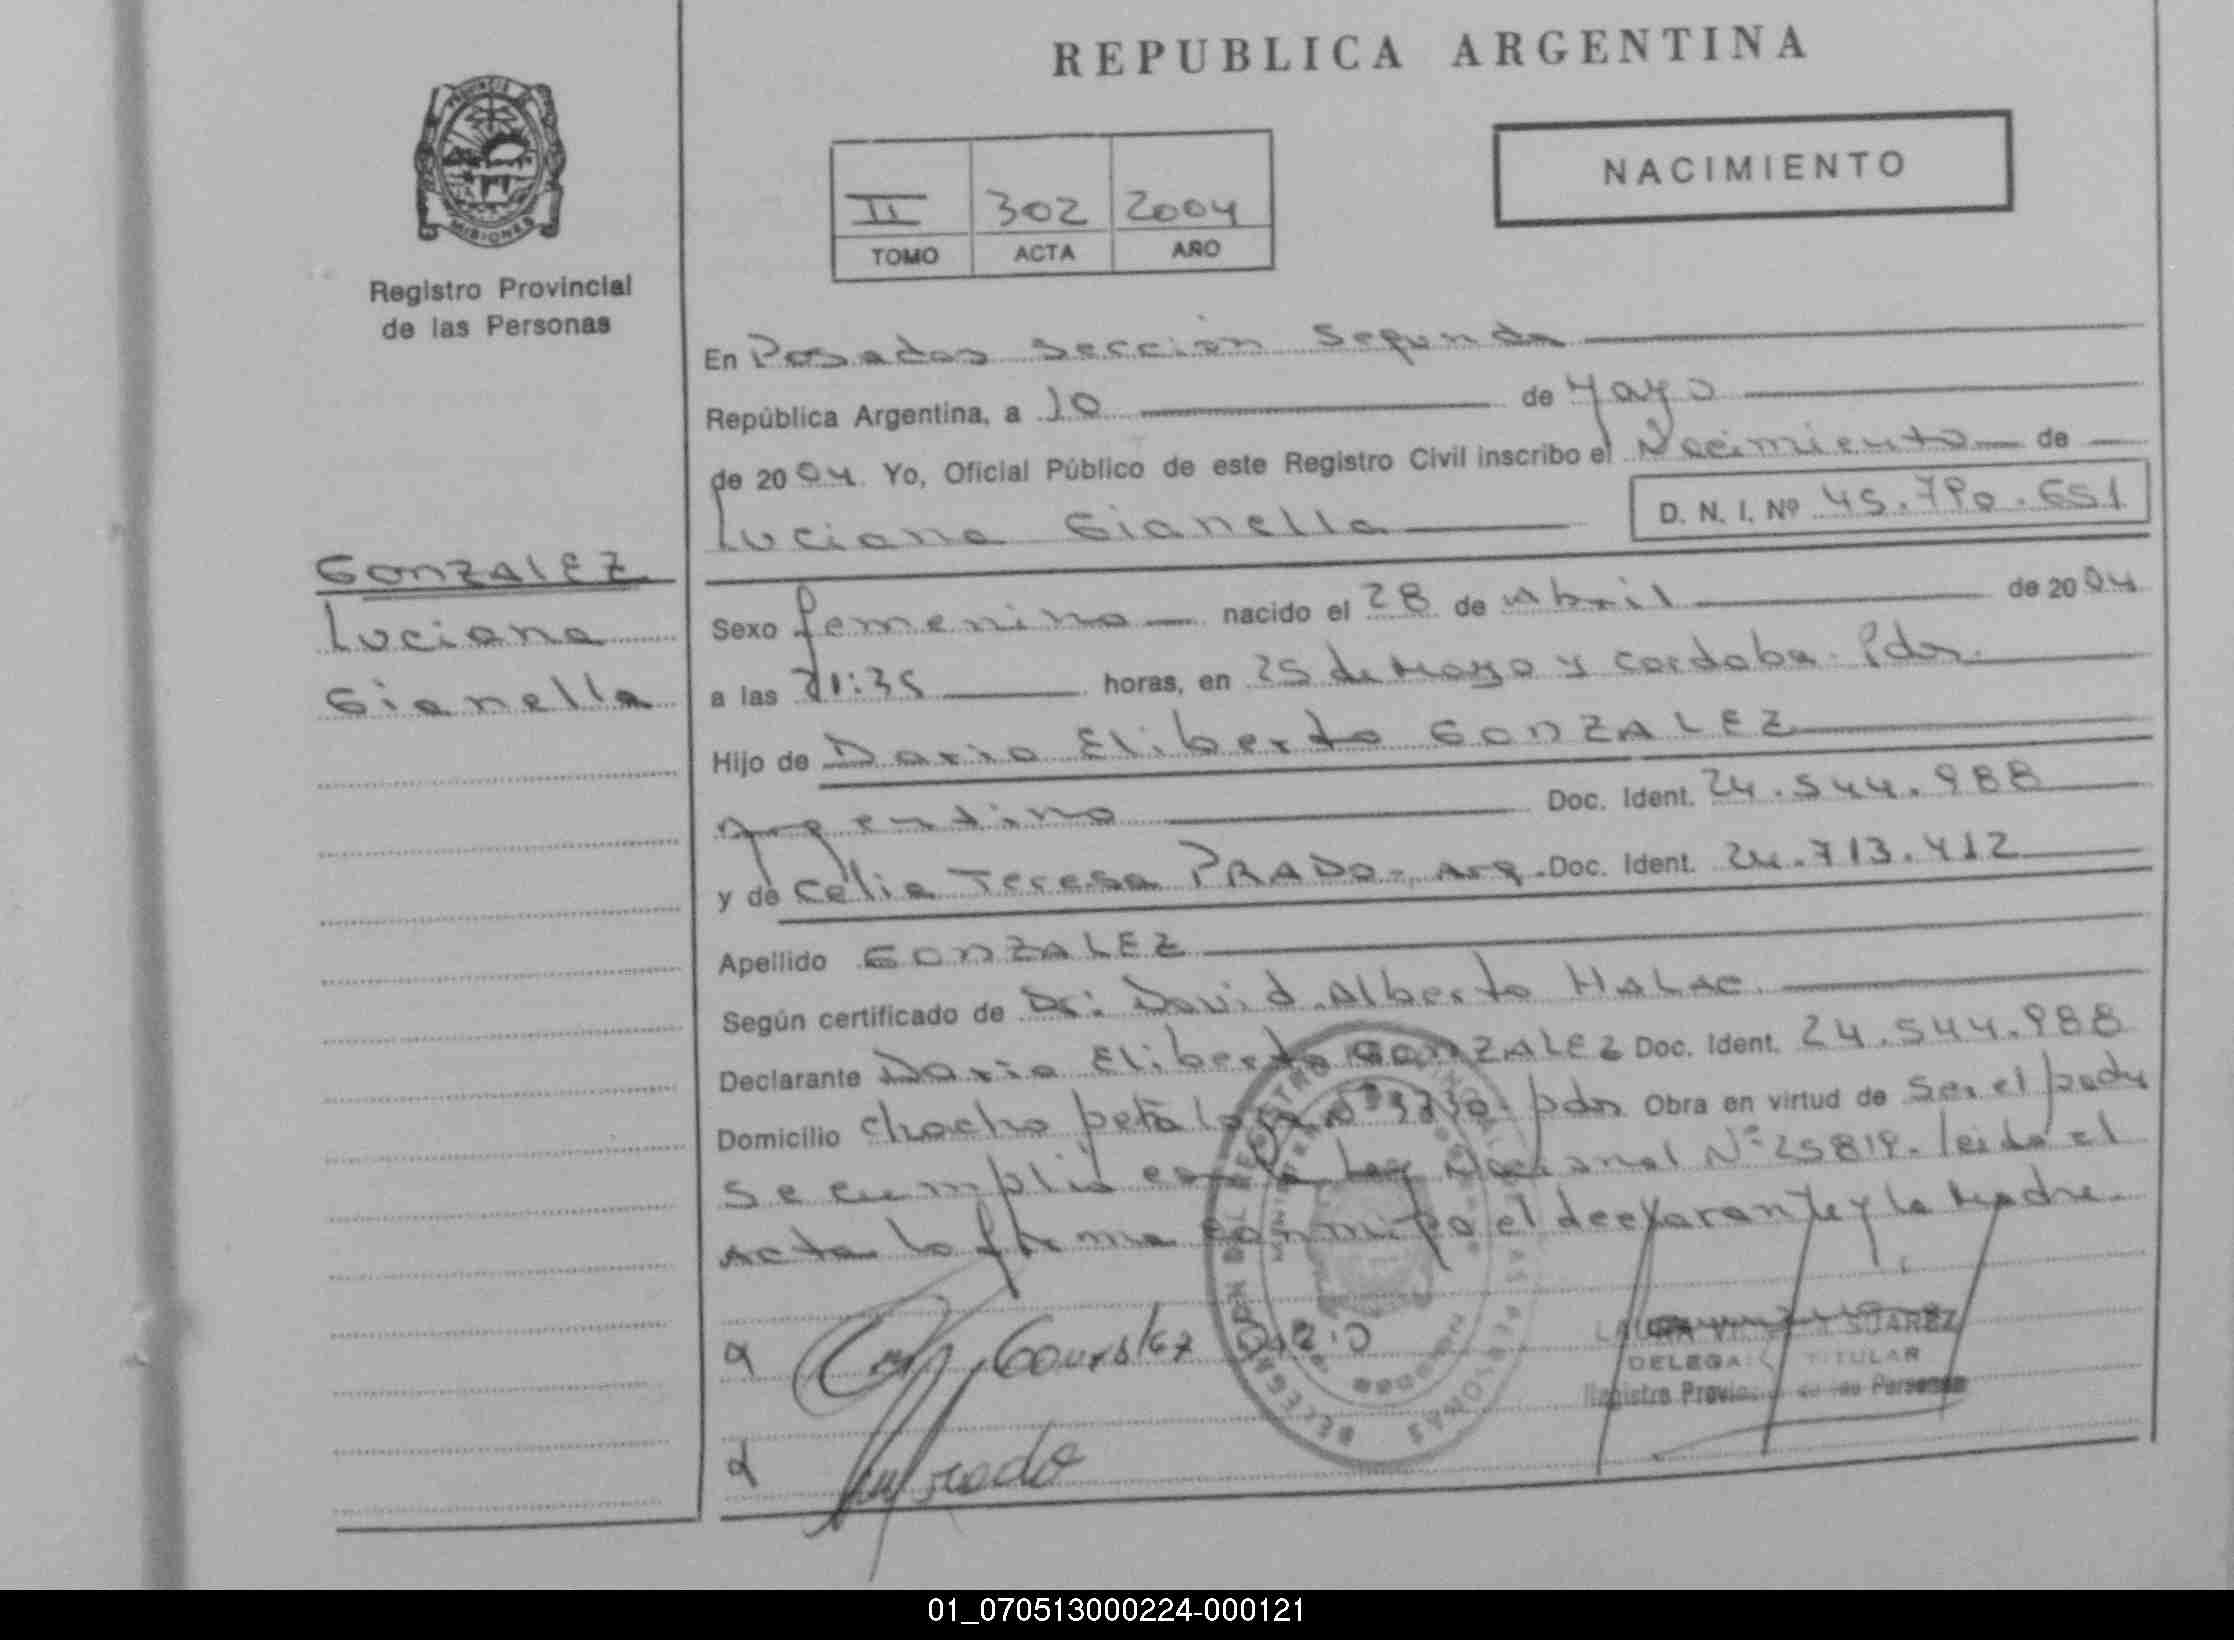 REPUBLICA ARGENTINA
PROVINCIA DE
MISIONES
Registro Provincial
de las Personas
NACIMIENTO
II 302 2004
TOMO ACTA AÑO
En Posadas sección Segunda
República Argentina, a 10 de Mayo
de 2004 Yo, Oficial Público de este Registro Civil inscribo el Nacimiento de
Luciana Gianella D. N. I. Nº 45.790.651
GONZALEZ
Luciana
Gianella
Sexo femenino nacido el 28 de Abril de 2004
a las 21:35 horas, en 25 de Mayo y cordoba. Pdas.
Hijo de Dario Eliberto GONZALEZ
Argentino Doc. Ident. 24.544.988
y de Celia Teresa PRADO-, Arg. Doc. Ident. 24.713.412
Apellido GONZALEZ
Según certificado de Dr: David Alberto HALAC
Declarante Dario Eliberto GONZALEZ Doc. Ident. 24.544.988
Domicilio chacho peñaloza Nº pdas Obra en virtud de Ser el padre
Se cumplió con la Ley Nacional Nº 25819. leida el
Acta la firma conmigo el declarante y la Madre.
Gonzalez
Prado
LAURA SUAREZ
DELEGA TITULAR
Registro Provincial de las Personas
01_070513000224-000121